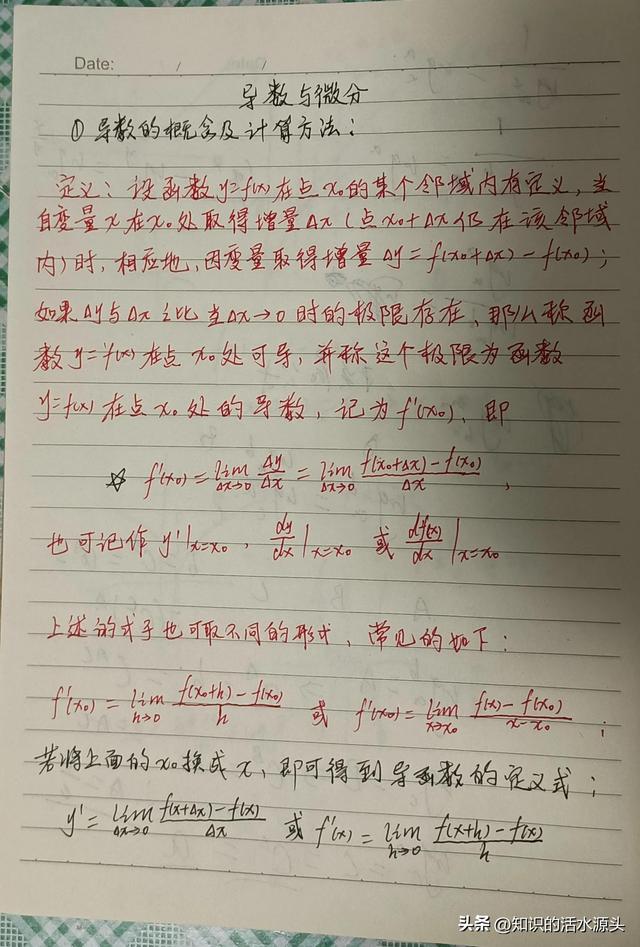 Date: / /
导数与微分
① 导数的概念及计算方法：
定义：设函数y=f(x)在点x₀的某个邻域内有定义，当
自变量x在x₀处取得增量Δx（点x₀+Δx仍在该邻域
内）时，相应地，因变量取得增量Δy=f(x₀+Δx)-f(x₀)；
如果Δy与Δx之比当Δx→0时的极限存在，那么称函
数y=f(x)在点x₀处可导，并称这个极限为函数
y=f(x)在点x₀处的导数，记为f'(x₀)，即
☆ f'(x₀)=lim_{Δx→0} Δy/Δx = lim_{Δx→0} (f(x₀+Δx)-f(x₀))/Δx，
也可记作y'|x=x₀，dy/dx|x=x₀ 或 df(x)/dx|x=x₀
上述的式子也可取不同的形式，常见的如下：
f'(x₀)=lim_{h→0} (f(x₀+h)-f(x₀))/h 或 f'(x₀)=lim_{x→x₀} (f(x)-f(x₀))/(x-x₀)；
若将上面的x₀换成x，即可得到导函数的定义式；
y'=lim_{Δx→0} (f(x+Δx)-f(x))/Δx 或 f'(x)=lim_{h→0} (f(x+h)-f(x))/h
头条 @知识的活水源头